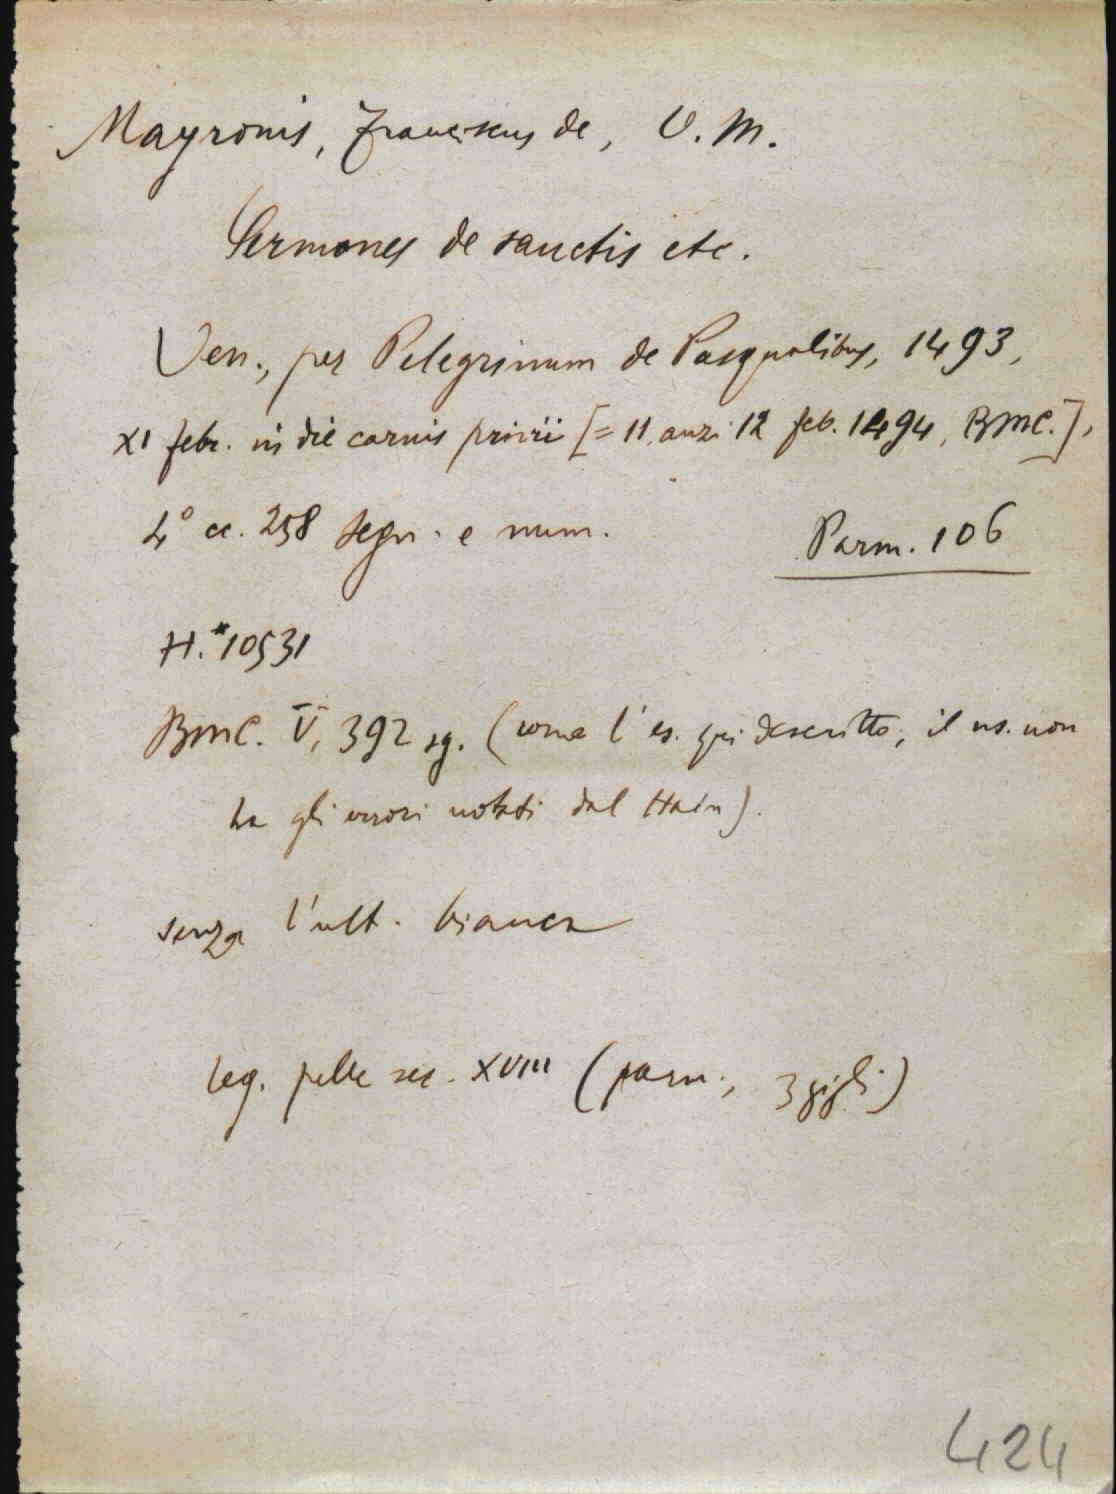 Mayronis, Franciscus de, O. M.
Sermones de sanctis etc.
Ven., per Pelegrinum de Pasqualibus, 1493,
XI febr. in die carnis privii [= 11, anzi 12 feb. 1494, BMC.],
4° cc. 258 segn. e num.
Parm. 106
H.*10531
BMC. V, 392 sg. (come l'es. qui descritto, il ns. non
ha gli errori notati dal Hain).
senza l'ult. bianca
leg. pelle sec. XVIII (parm., 3 gigli)
424